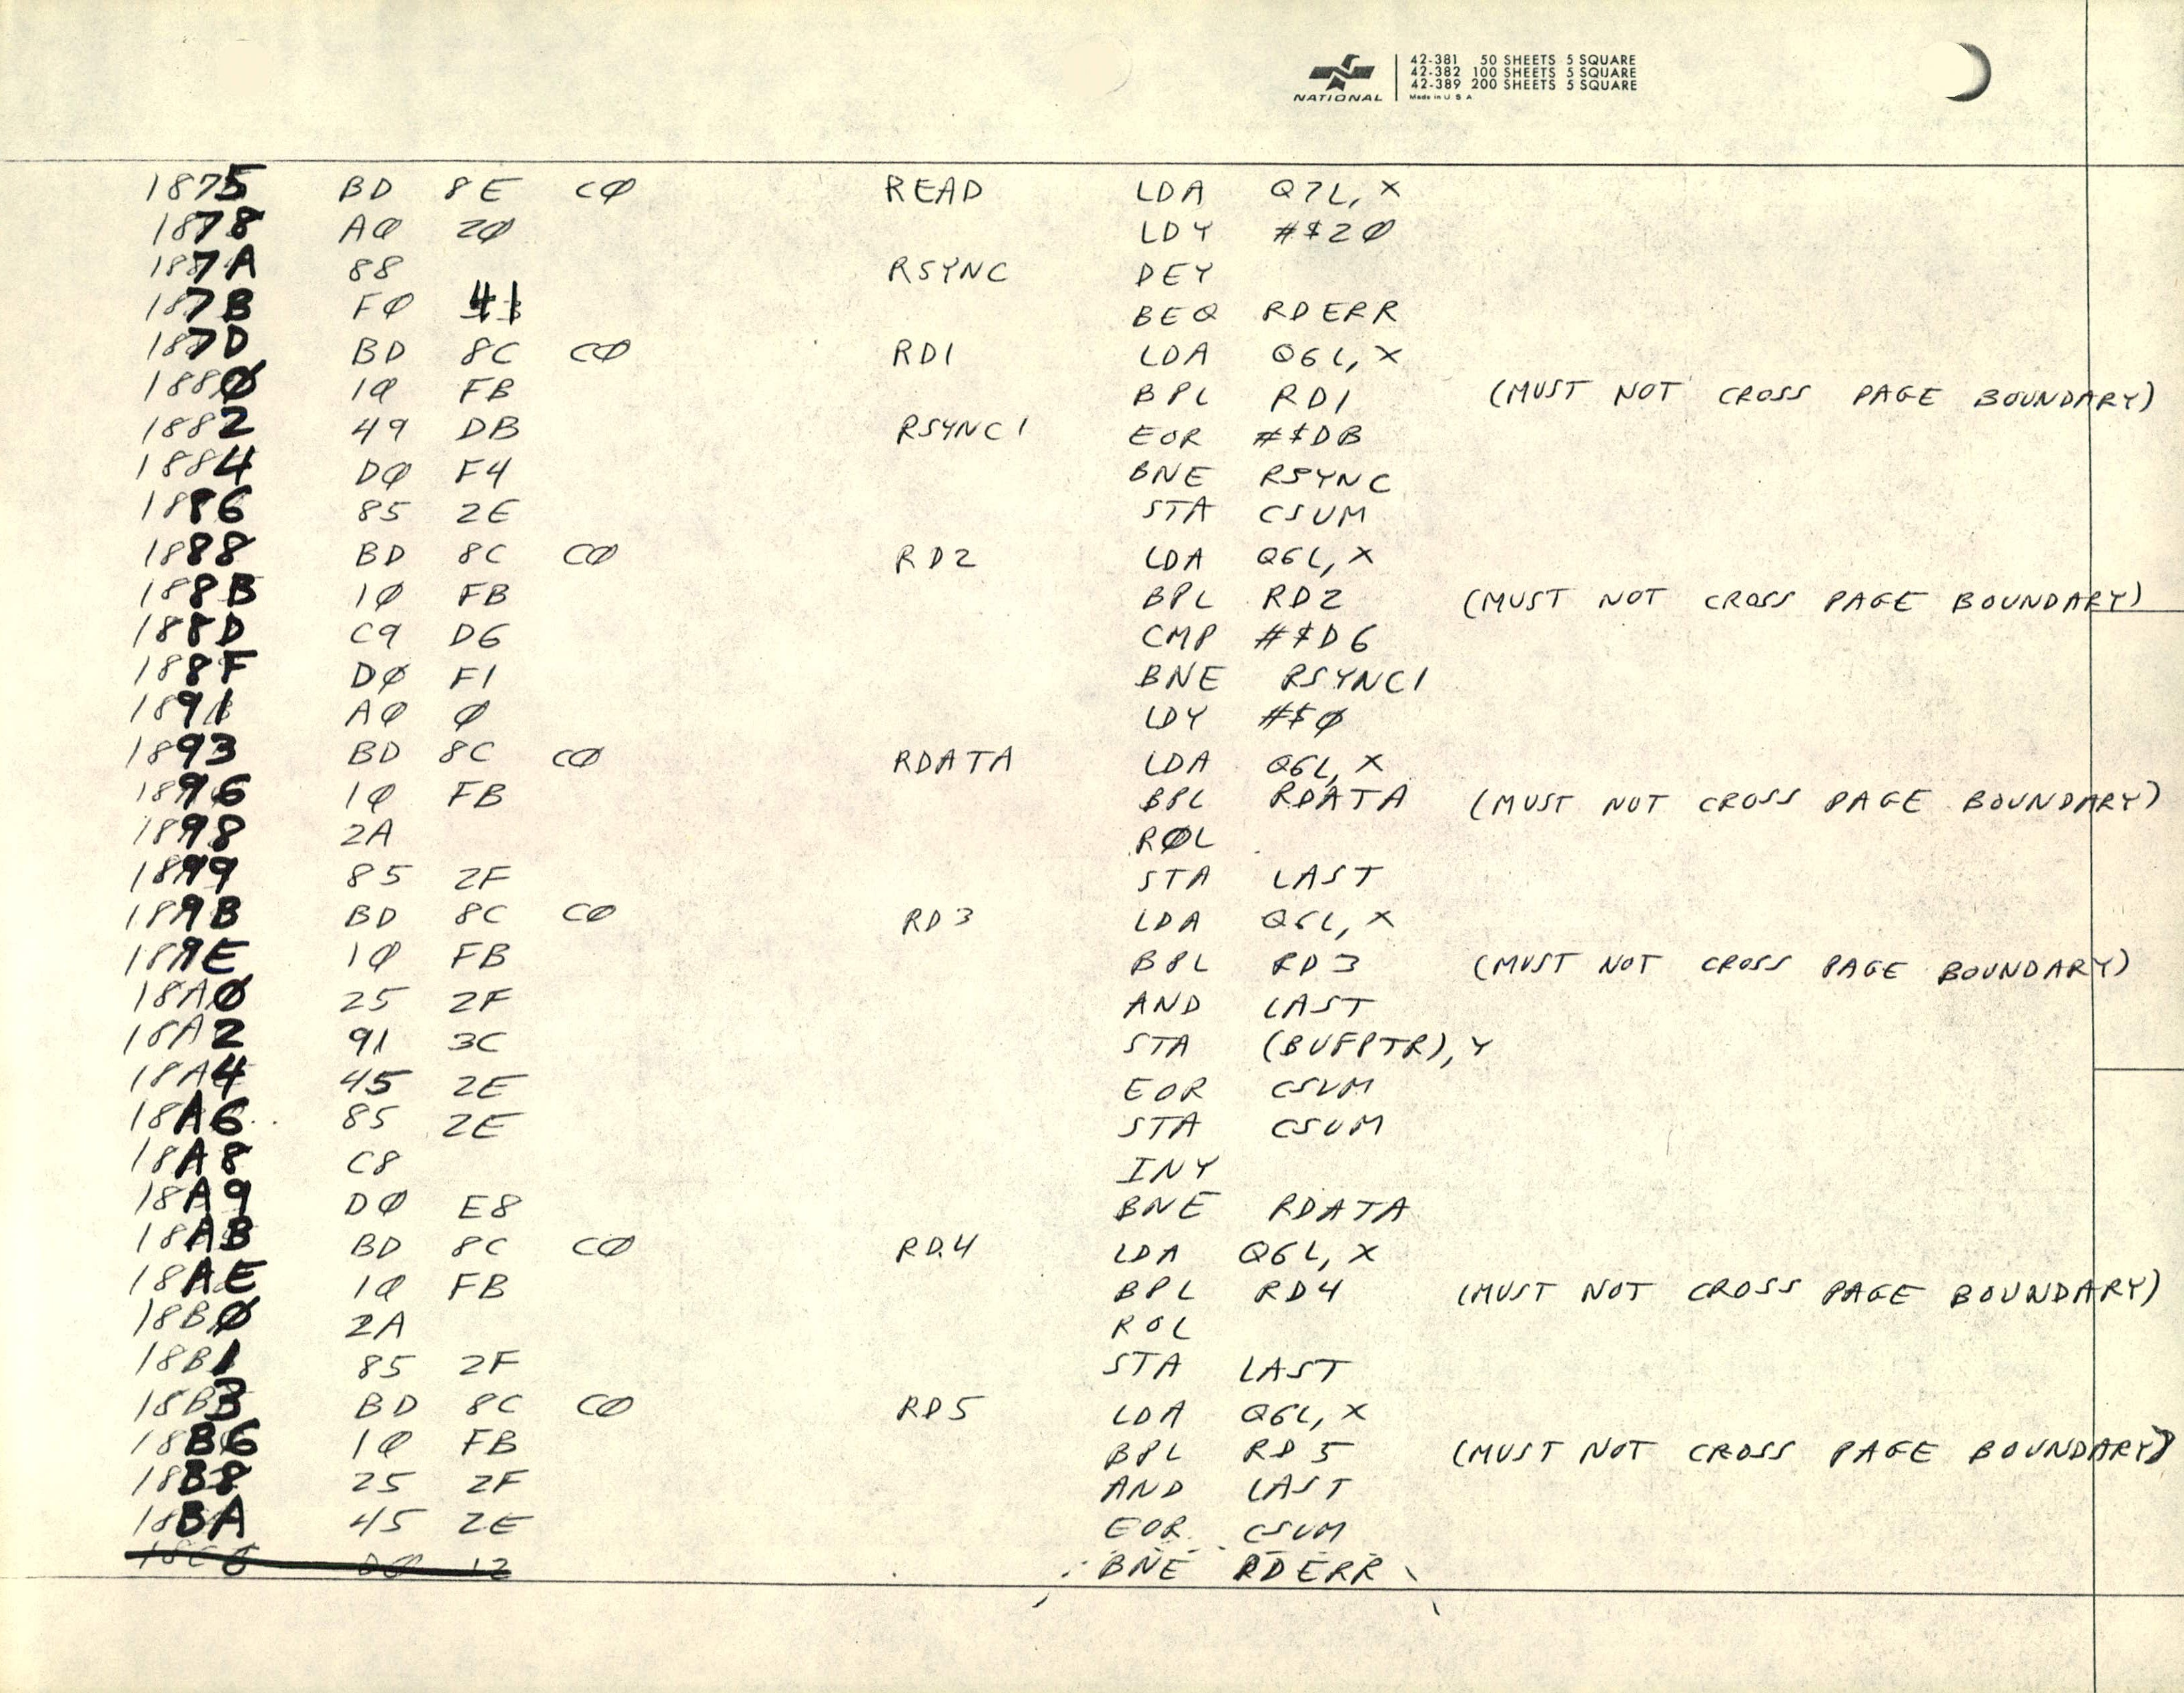 NATIONAL
42-381 50 SHEETS 5 SQUARE
42-382 100 SHEETS 5 SQUARE
42-389 200 SHEETS 5 SQUARE
Made in U S A
1875 BD 8E CØ READ LDA Q7L,X
1878 AØ 2Ø LDY #$2Ø
187A 88 RSYNC DEY
187B FØ 41 BEQ RDERR
187D BD 8C CØ RD1 LDA Q6L,X
188Ø 1Ø FB BPL RD1 (MUST NOT CROSS PAGE BOUNDARY)
1882 49 DB RSYNC1 EOR #$DB
1884 DØ F4 BNE RSYNC
1886 85 2E STA CSUM
1888 BD 8C CØ RD2 LDA Q6L,X
188B 1Ø FB BPL RD2 (MUST NOT CROSS PAGE BOUNDARY)
188D C9 D6 CMP #$D6
188F DØ F1 BNE RSYNC1
1891 AØ Ø LDY #$Ø
1893 BD 8C CØ RDATA LDA Q6L,X
1896 1Ø FB BPL RDATA (MUST NOT CROSS PAGE BOUNDARY)
1898 2A RØL
1899 85 2F STA LAST
189B BD 8C CØ RD3 LDA Q6L,X
189E 1Ø FB BPL RD3 (MUST NOT CROSS PAGE BOUNDARY)
18AØ 25 2F AND LAST
18A2 91 3C STA (BUFPTR),Y
18A4 45 2E EOR CSUM
18A6 85 2E STA CSUM
18A8 C8 INY
18A9 DØ E8 BNE RDATA
18AB BD 8C CØ RD4 LDA Q6L,X
18AE 1Ø FB BPL RD4 (MUST NOT CROSS PAGE BOUNDARY)
18BØ 2A ROL
18B1 85 2F STA LAST
18B3 BD 8C CØ RD5 LDA Q6L,X
18B6 1Ø FB BPL RD5 (MUST NOT CROSS PAGE BOUNDARY)
18B8 25 2F AND LAST
18BA 45 2E EOR CSUM
DØ 12 BNE RDERR